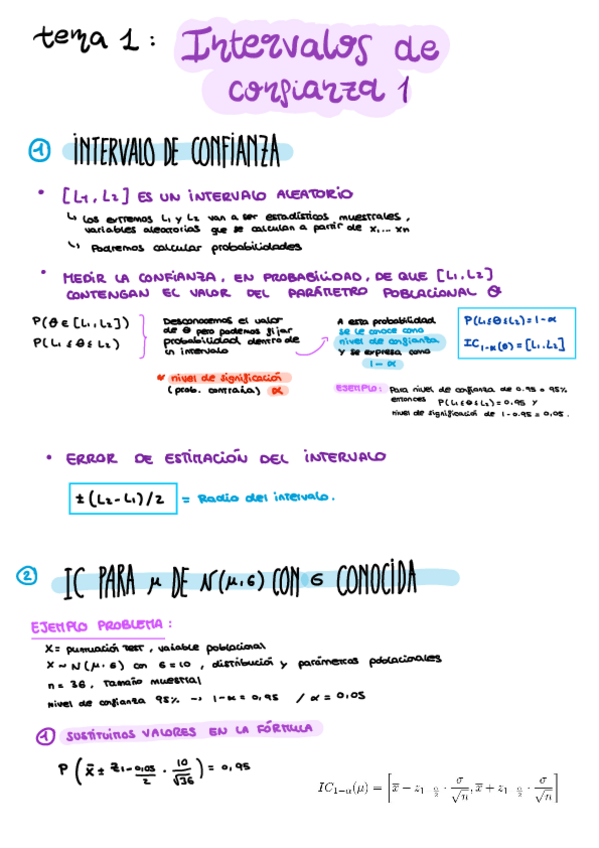 tema 1: Intervalos de
confianza 1
1 INTERVALO DE CONFIANZA
• [L1, L2] ES UN INTERVALO ALEATORIO
↳ Los extremos L1 y L2 van a ser estadísticos muestrales,
variables aleatorias que se calculan a partir de x1... xn
↳ Podremos calcular probabilidades
• MEDIR LA CONFIANZA, EN PROBABILIDAD, DE QUE [L1, L2]
CONTENGAN EL VALOR DEL PARÁMETRO POBLACIONAL θ
P(θ ∈ [L1, L2])
P(L1 ≤ θ ≤ L2)
Desconocemos el valor
de θ pero podemos fijar
probabilidad dentro de
un intervalo
A esta probabilidad
se le conoce como
nivel de confianza
y se expresa como
1-α
P(L1≤θ≤L2)=1-α
IC1-α(θ)=[L1, L2]
* nivel de significación
(prob. contraria) α
EJEMPLO: Para nivel de confianza de 0.95 o 95%
entonces P(L1≤θ≤L2)=0.95 y
nivel de significación de 1-0.95=0.05.
• ERROR DE ESTIMACIÓN DEL INTERVALO
±(L2-L1)/2 = Radio del intervalo.
2 IC PARA μ DE N(μ,σ) CON σ CONOCIDA
EJEMPLO PROBLEMA:
X= puntuación test, variable poblacional
X ~ N(μ,σ) con σ=10, distribución y parámetros poblacionales
n = 36, tamaño muestral
nivel de confianza 95% → 1-α = 0,95 / α = 0,05
1 SUSTITUIMOS VALORES EN LA FÓRMULA
P(x̄ ± z1-0,05/2 · 10/√36) = 0,95
IC1−α(μ) = [x̄ − z1 α/2 · σ/√n, x̄ + z1 α/2 · σ/√n]